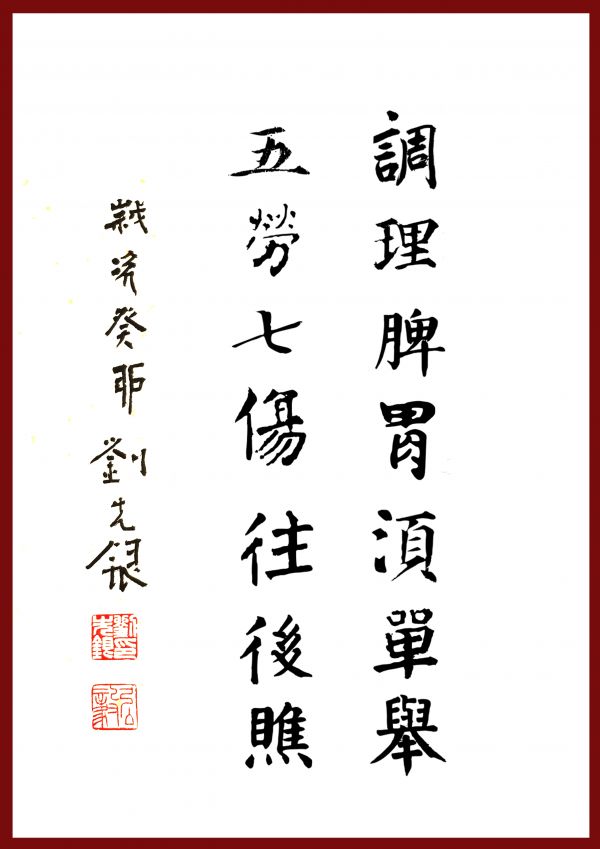 調理脾胃須單舉
五勞七傷往後瞧
歲次癸卯 劉先銀